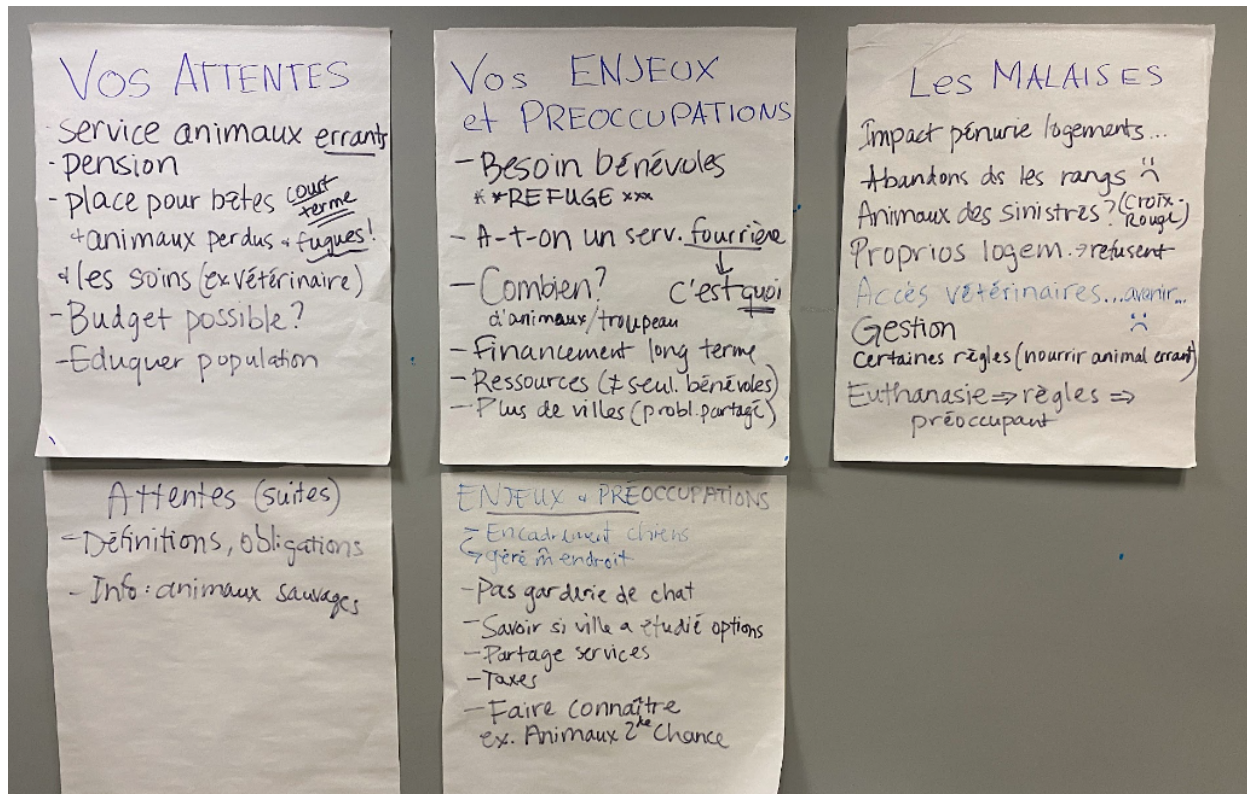 VOS ATTENTES
· service animaux errants
· pension
- place pour bêtes court terme
+ animaux perdus + fugues!
+ les soins (ex vétérinaire)
- Budget possible?
- Eduquer population
Attentes (suites)
- Définitions, obligations
- Info: animaux sauvages
Vos ENJEUX
et PREOCCUPATIONS
- Besoin bénévoles
* * REFUGE ***
- A-t-on un serv. fourrière
↓
c'est quoi
- Combien?
d'animaux/troupeau
- Financement long terme
- Ressources (≠ seul. bénévoles)
- Plus de villes (probl. partagé)
ENJEUX + PRÉOCCUPATIONS
- Encadrement chiens
→ géré m̂ endroit
- Pas garderie de chat
- Savoir si ville a étudié options
- Partage services
- Taxes
- Faire connaître
ex. Animaux 2ke Chance
Les MALAISES
Impact pénurie logements...
Abandons ds les rangs
Animaux des sinistrés? (Croix-Rouge)
Proprios logem. → refusent
Accès vétérinaires...avenir...
Gestion
certaines règles (nourrir animal errant)
Euthanasie ⇒ règles ⇒
préoccupant